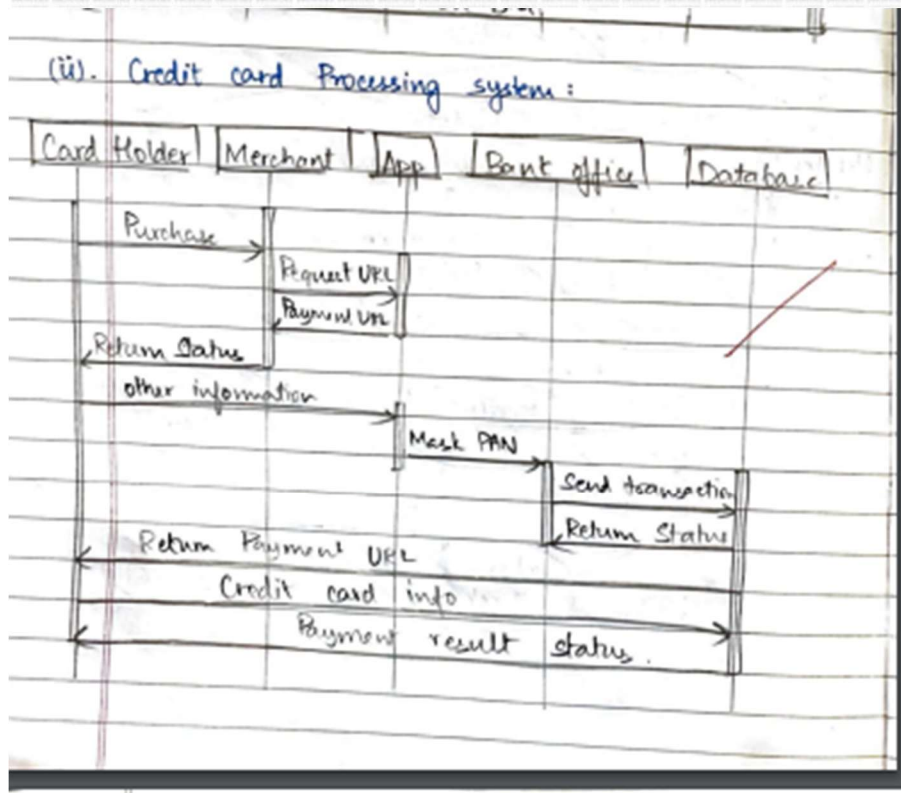 (ii). Credit card Processing system :
Card Holder Merchant App Bank office Database
Purchase
Request URL
Payment URL
Return Status
other information
Mask PAN
Send transaction
Return Status
Return Payment URL
Credit card info
Payment result status.